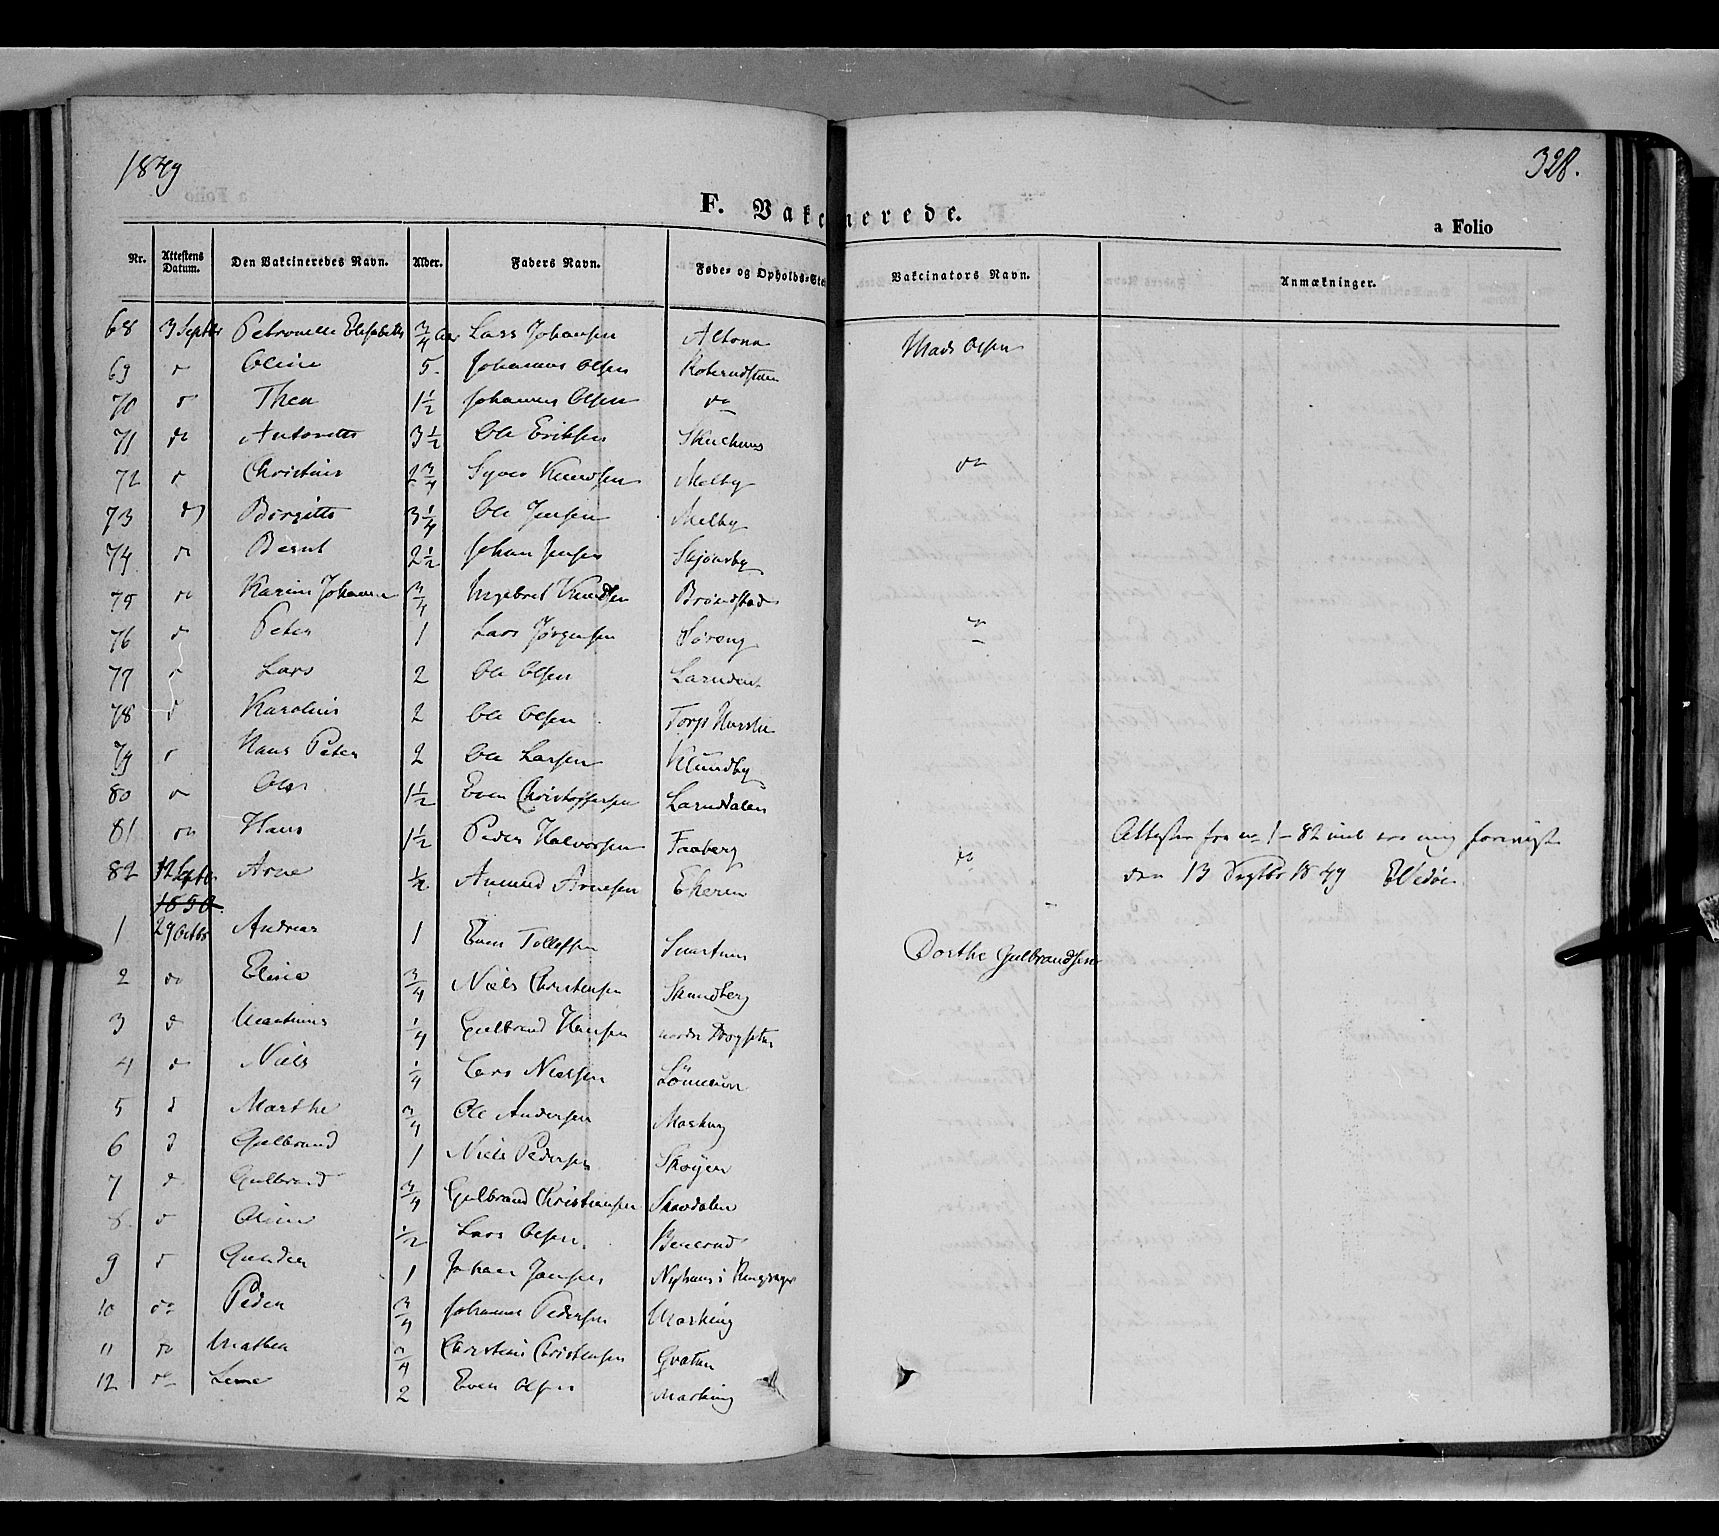 1849
328.
F. Vakcinerede.
a Folio
Nr. Attestens Datum. Den Vakcineredes Navn. Alder. Faders Navn. Føde- og Opholds-Ste Vakcinators Navn. Anmærkninger.
68 3 Septbr Petronelle Elisabeth 3/4 Aar Lars Johansen Altona Mads Olsen
69 Oline 5. Johannes Olsen
70 Thea 1 1/2 Johannes Olsen do
71 do Antonette 3 1/2 Ole Eriksen
72 Christine 2 3/4 Syver Knudsen Melby do
73 do Birgitte 3 1/4 Ole Jensen Melby
74 do Bernt 2 1/2 Johan Jensen Skjønsby
75 do Karine Johanne 3/4 Ingebret Knudsen Brøndstad
76 d Peter 1 Lars Jørgensen Søreng do
77 Lars 2 Ole Olsen
78 d Karoline 2 Ole Olsen Torp
79 Hans Peter 2 Ole Larsen Klundby
80 Ole 1 1/2 Even Christoffersen Larudalen
81 do Hans 1 1/2 Peder Halvorsen Faaberg Attester fra no 1-82 inl er mig foreviist
82 12 Septbr Arne 1/2 Amund Arnesen Ekeren do den 13 Septbr 1849
1850.
1 29 Octbr Andreas 1 Even Tollefsen Dorthe Gulbrandsen
2 do Eline 3/4 Niels Christensen Skundberg
3 d Martinus 1/4 Gulbrand Hansen
4 d Niels 1/4 Lars Nielsen
5 d Marthe 3/4 Ole Andersen
6 d Gulbrand 1 Niels Pedersen Skøyen
7 d Gulbrand 3/4 Gulbrand Christiansen Skavdalen
8. d Oline 1/2 Lars Olsen
9 d 1 Johan Jansen Nyhuus i Ringsager
10 do Peder 3/4 Johannes Pedersen
11 do Mathea 3/4 Christian Christensen
12 do Lene 2 Even Olsen